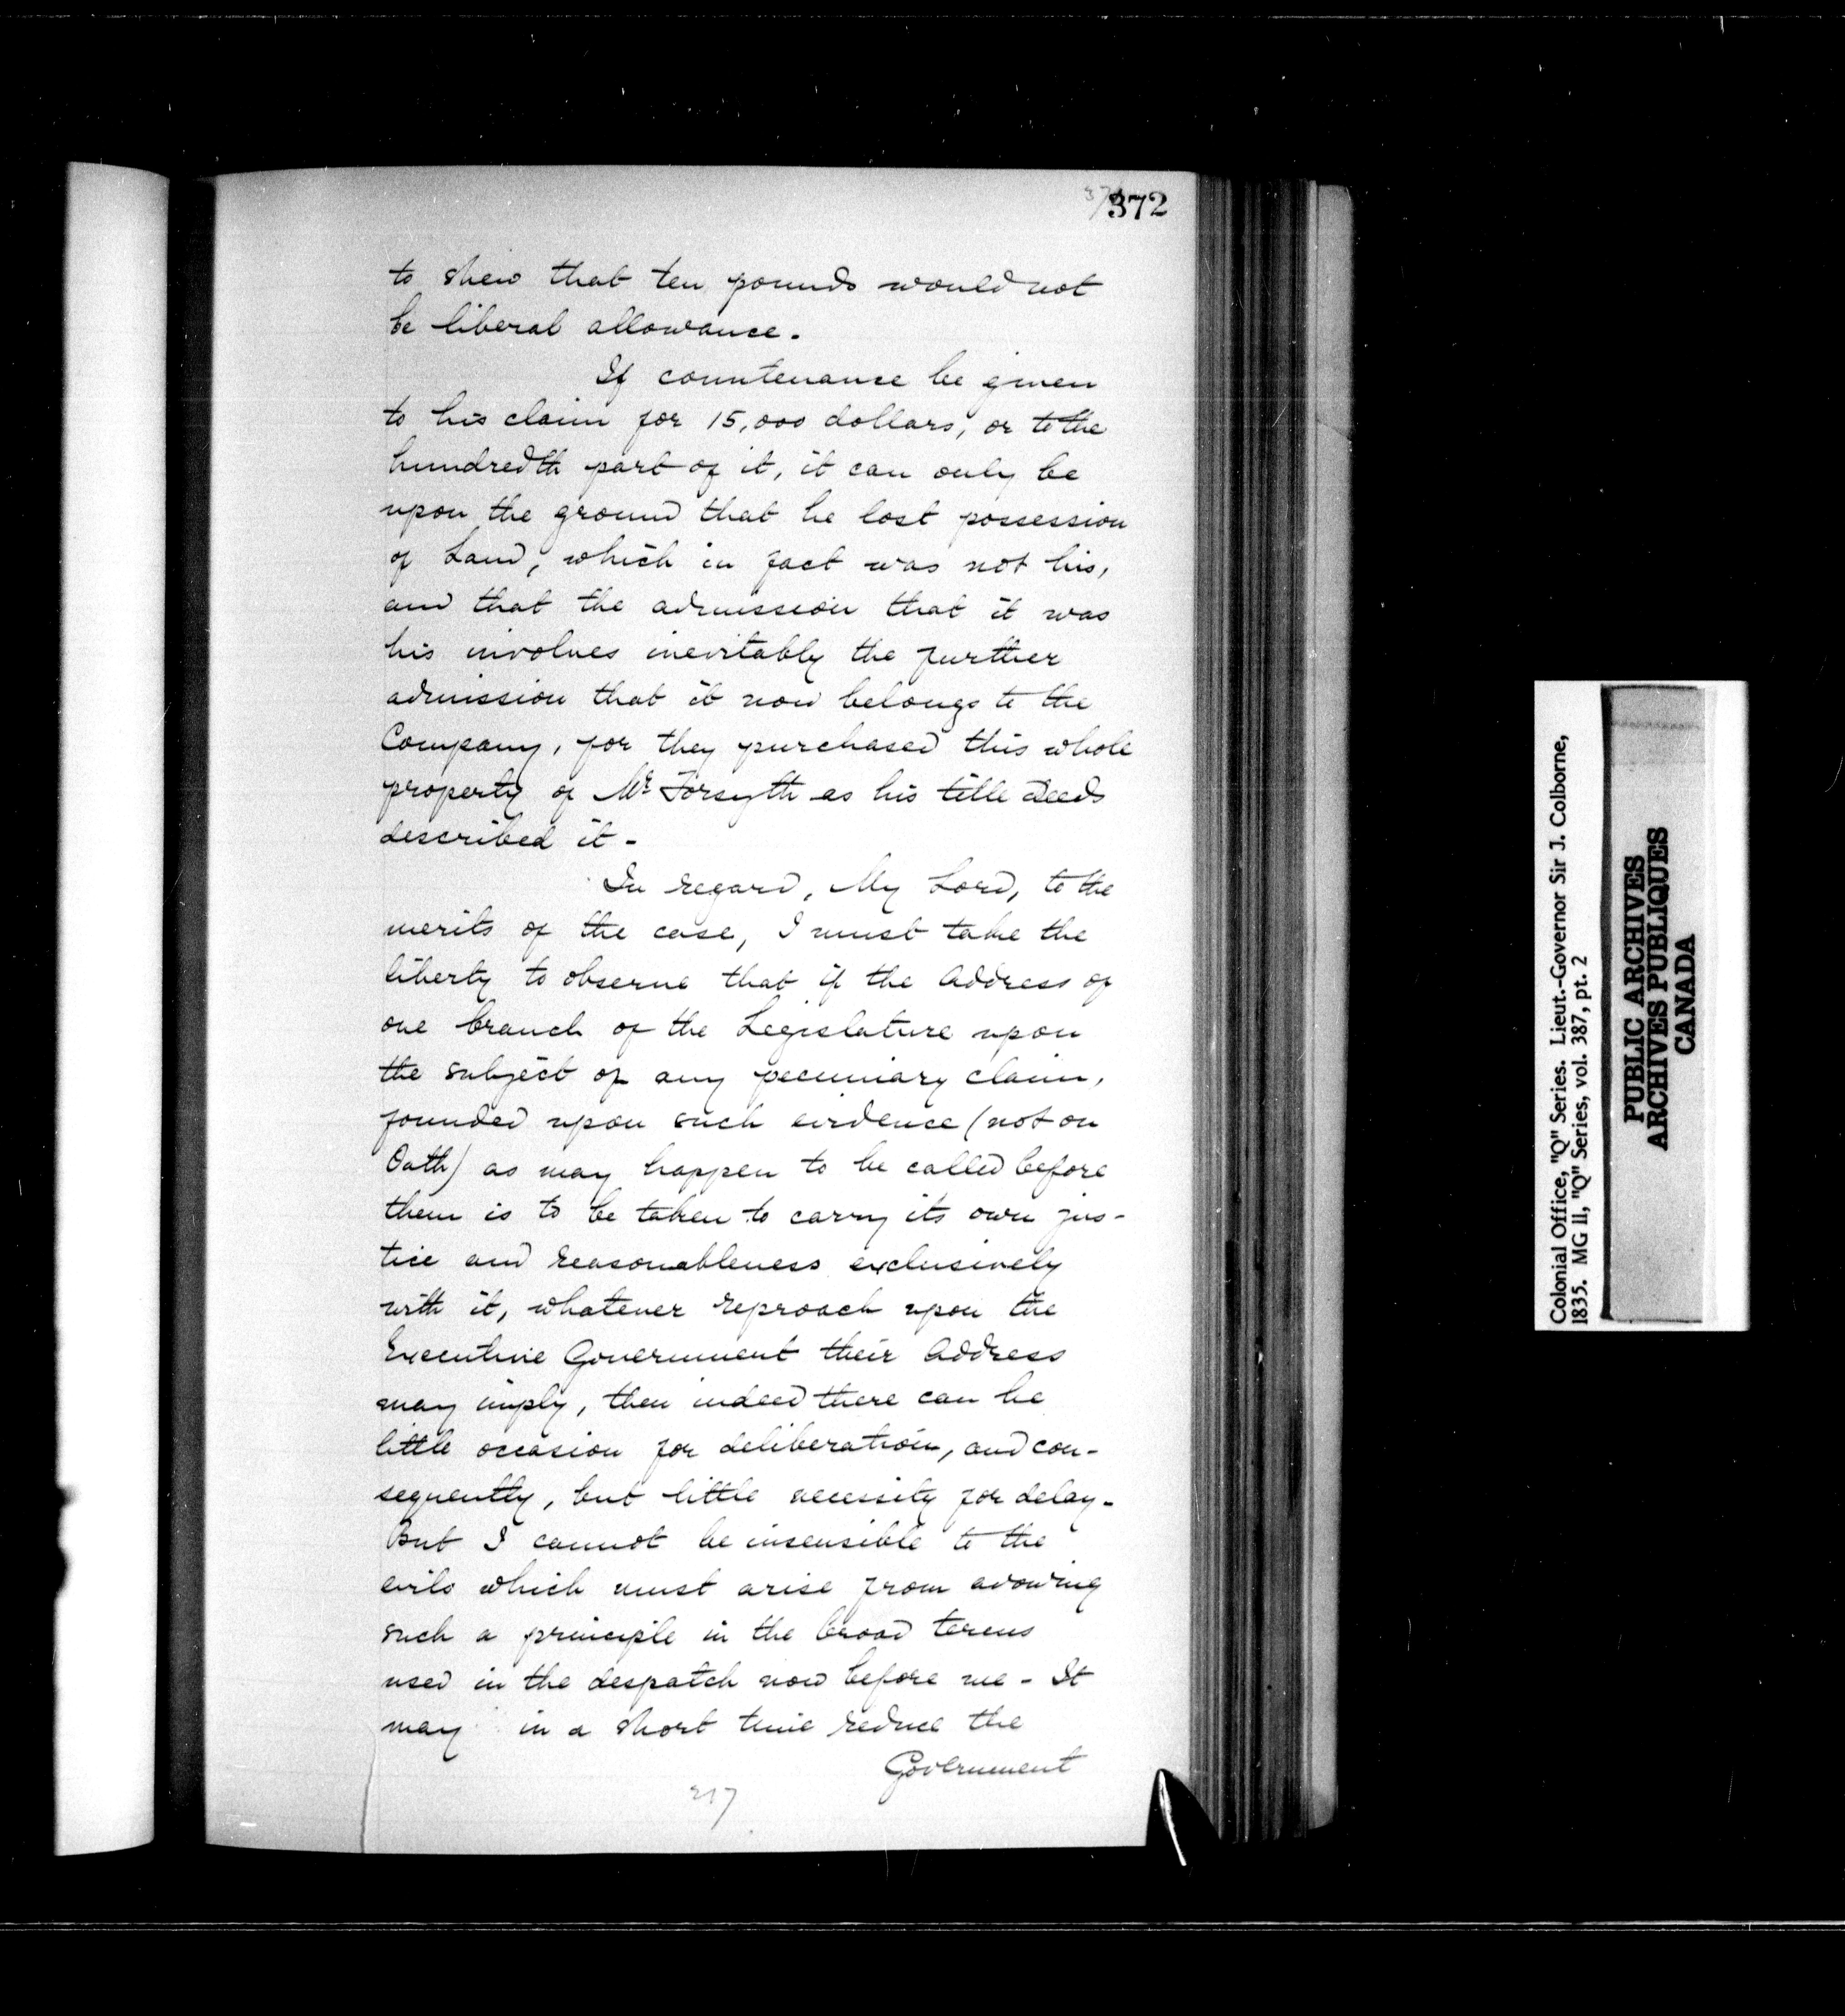 372
to shew that ten pounds would not
be liberal allowance.
If countenance be given
to his claim for 15,000 dollars, or to the
hundredth part of it, it can only be
upon the ground that he lost possession
of Land, which in fact was not his,
and that the admission that it was
his involves inevitably the further
admission that it now belongs to the
Company, for they purchased this whole
property of Mr Forsyth as his title deeds
described it -
In regard, My Lord, to the
merits of the case, I must take the
liberty to observe that if the Address of
one branch of the Legislature upon
the subject of any pecuniary claim,
founded upon such evidence (not on
Oath) as may happen to be called before
them is to be taken to carry its own jus-
tice and reasonableness exclusively
with it, whatever reproach upon the
Executive Government their Address
may imply, then indeed there can be
little occasion for deliberation, and con-
sequently, but little necessity for delay -
But I cannot be insensible to the
evils which must arise from avowing
such a principle in the broad terms
used in the despatch now before me - It
may in a short time reduce the
Government
217
Colonial Office, "Q" Series. Lieut.-Governor Sir J. Colborne,
1835. MG 11, "Q" Series, vol. 387, pt. 2
PUBLIC ARCHIVES
ARCHIVES PUBLIQUES
CANADA